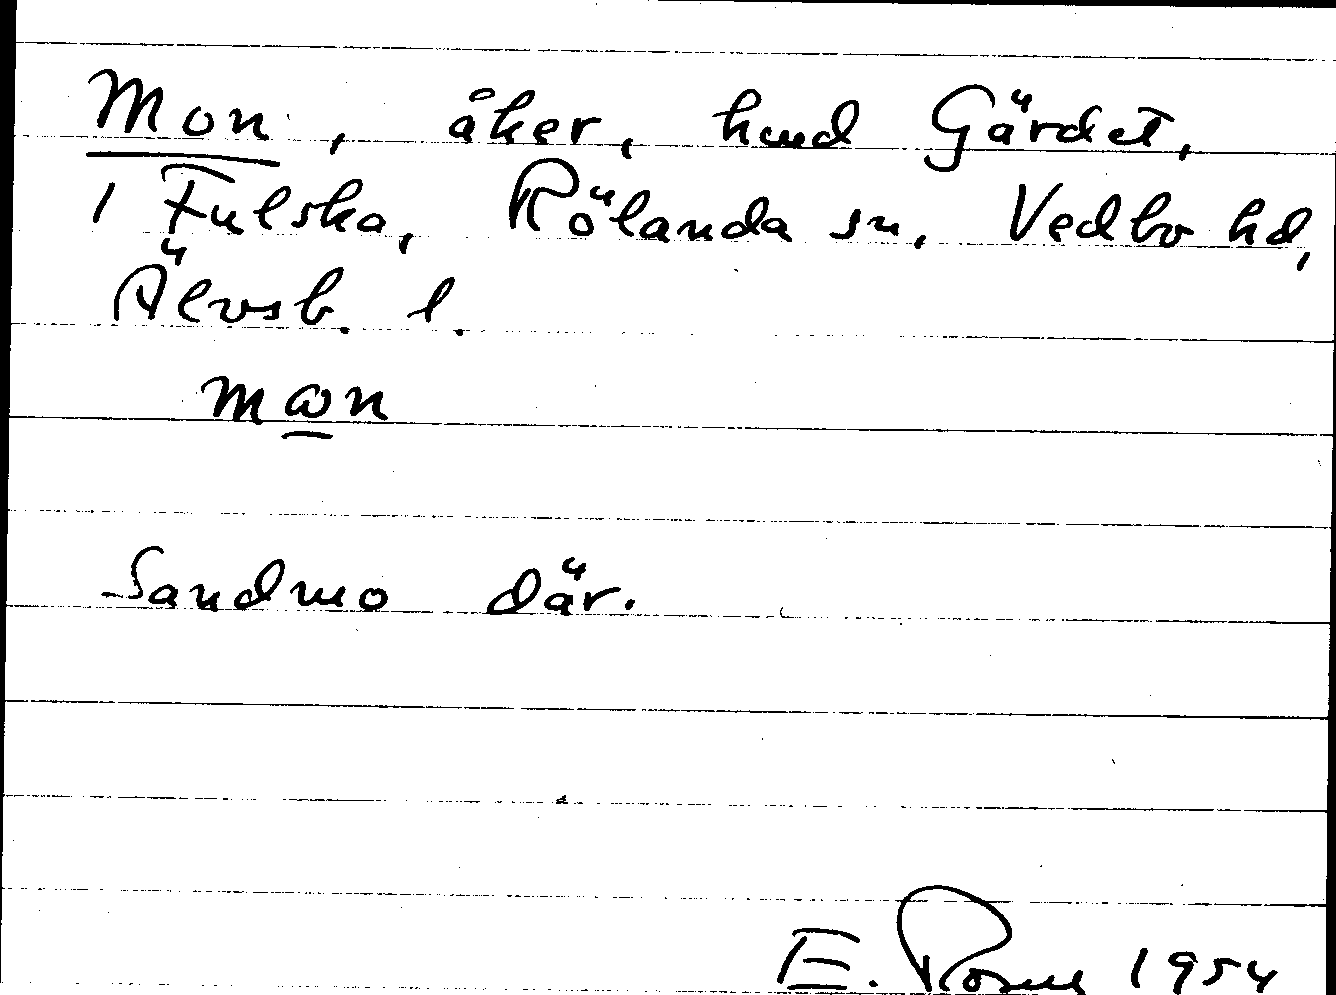 Mon, åker, hmd Gärdet,
1 Fulska, Rölanda sn, Vedbo hd,
Älvsb. l.
mωn
Sandmo där.
E. 1954